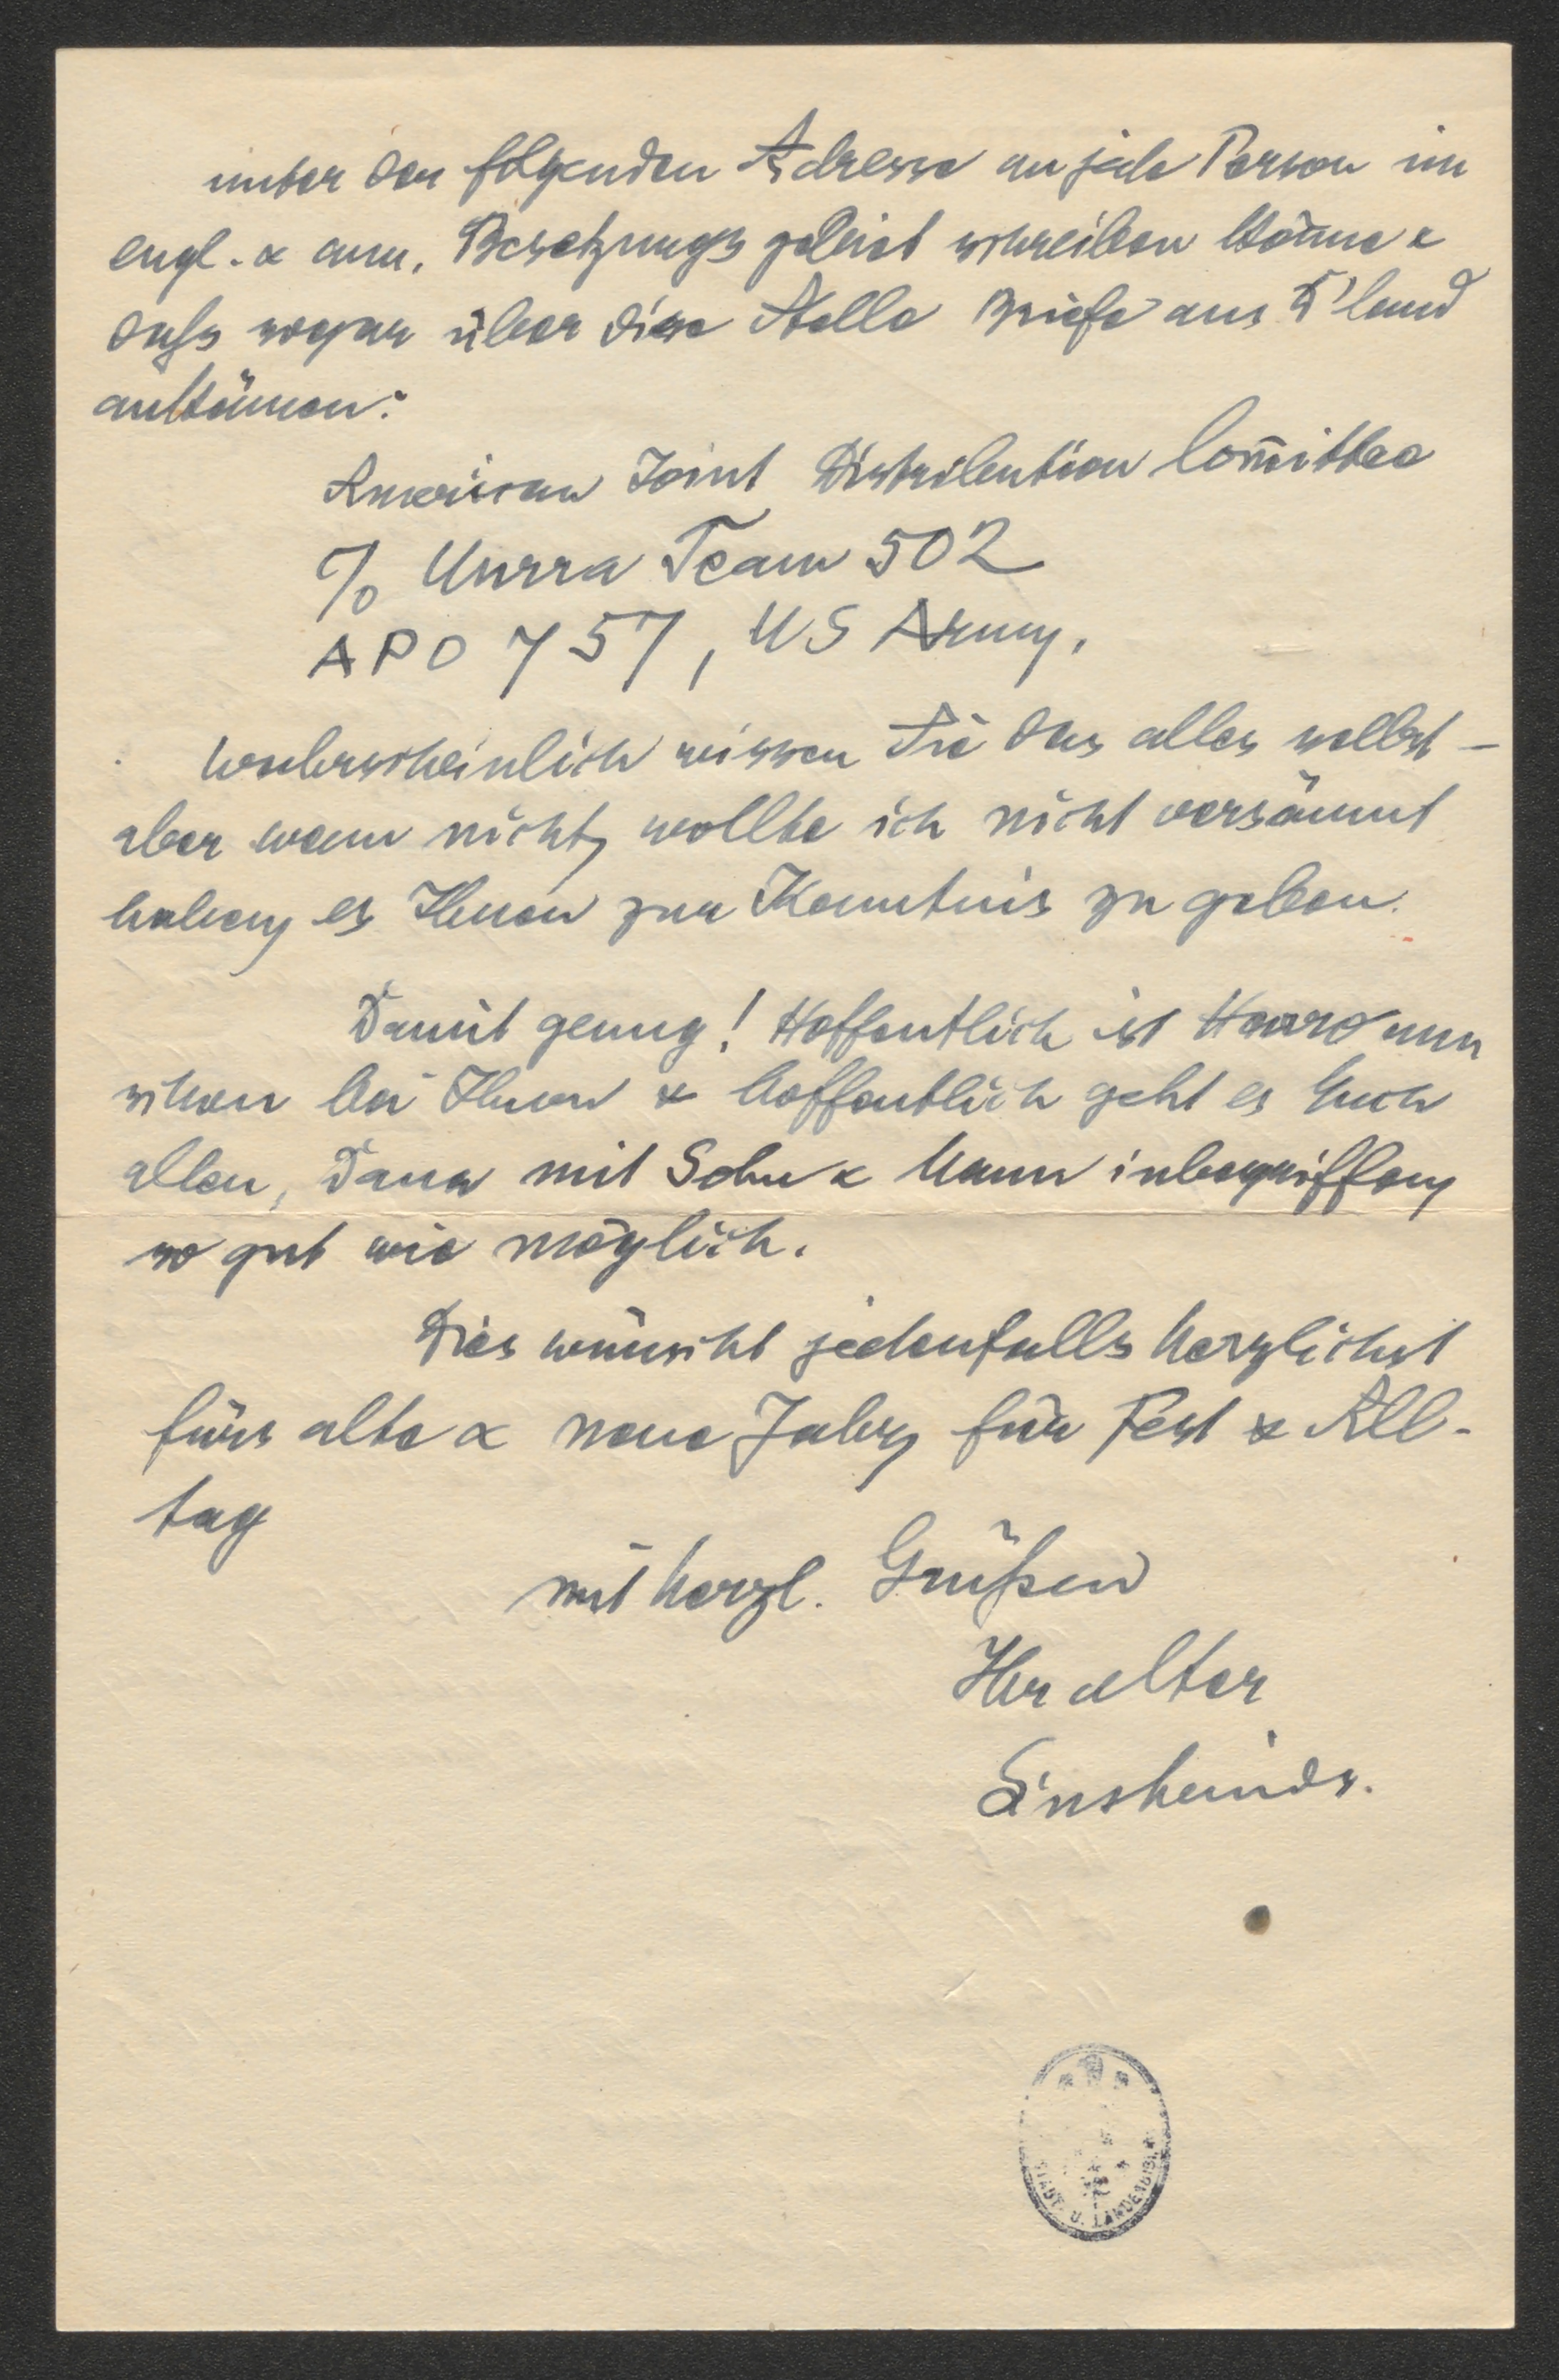 unter der folgenden Adresse an jede Person im
engl. & am. Besetzungsgebiet schreiben könne &
dass sogar über diese Stelle Briefe aus D'land
ankämen:
American Joint Distribution Com̄ittee
c/o Unrra Team 502
APO 757, US Army.
Wahrscheinlich wissen Sie das alles selbst –
aber wenn nicht, wollte ich nicht versäumt
haben, es Ihnen zur Kenntnis zu geben.
Damit genug! Hoffentlich ist Harro nun
schon bei Ihnen & hoffentlich geht es Euch
allen, Dana mit Sohn & Mann inbegriffen,
so gut wie möglich.
Dies wünscht jedenfalls herzlichst
fürs alte & neue Jahr, für Fest & All-
tag
mit herzl. Grüßen
Ihr alter
Sinsheimer.
STADT- U. LANDESBIBL.